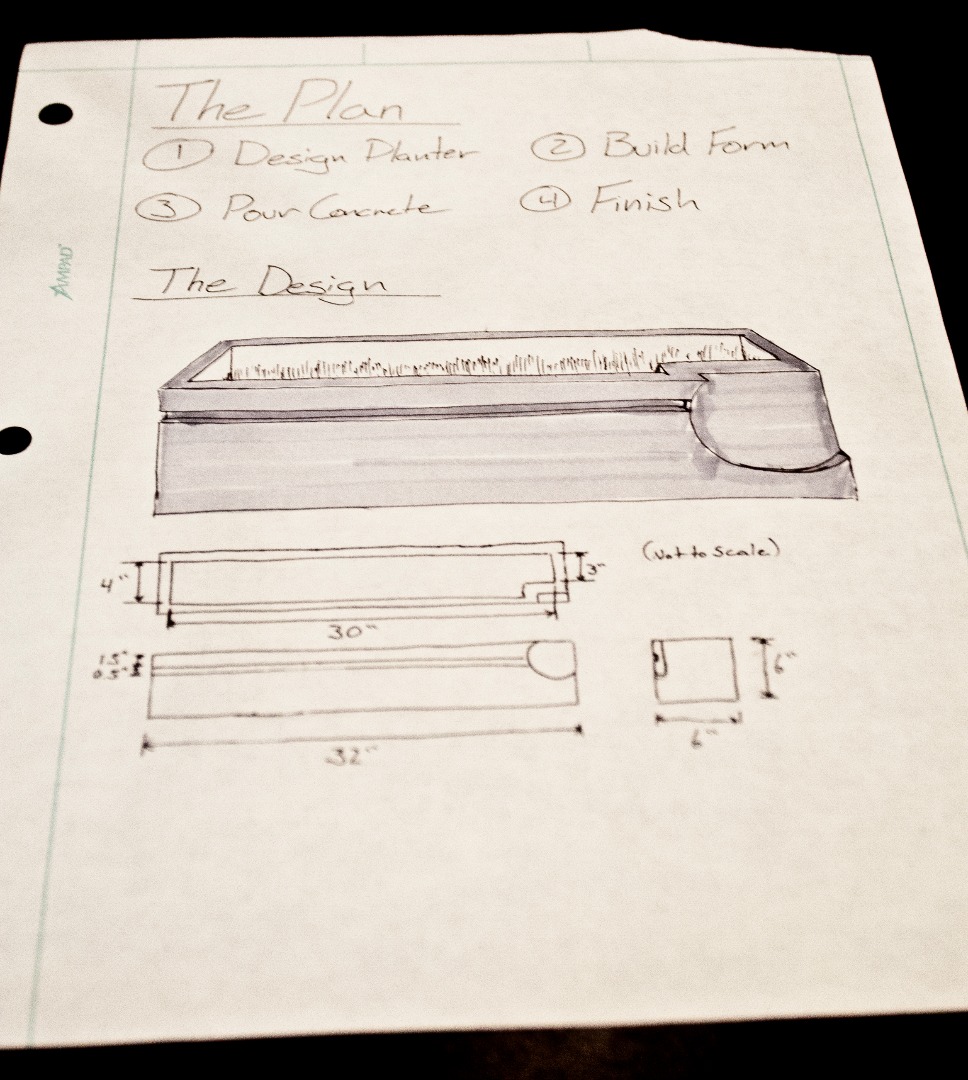 The Plan
① Design Planter ② Build Form
③ Pour Concrete ④ Finish
AMPAD
The Design
(Not to Scale)
4"
3"
30"
1.5"
0.5"
6"
6"
32"